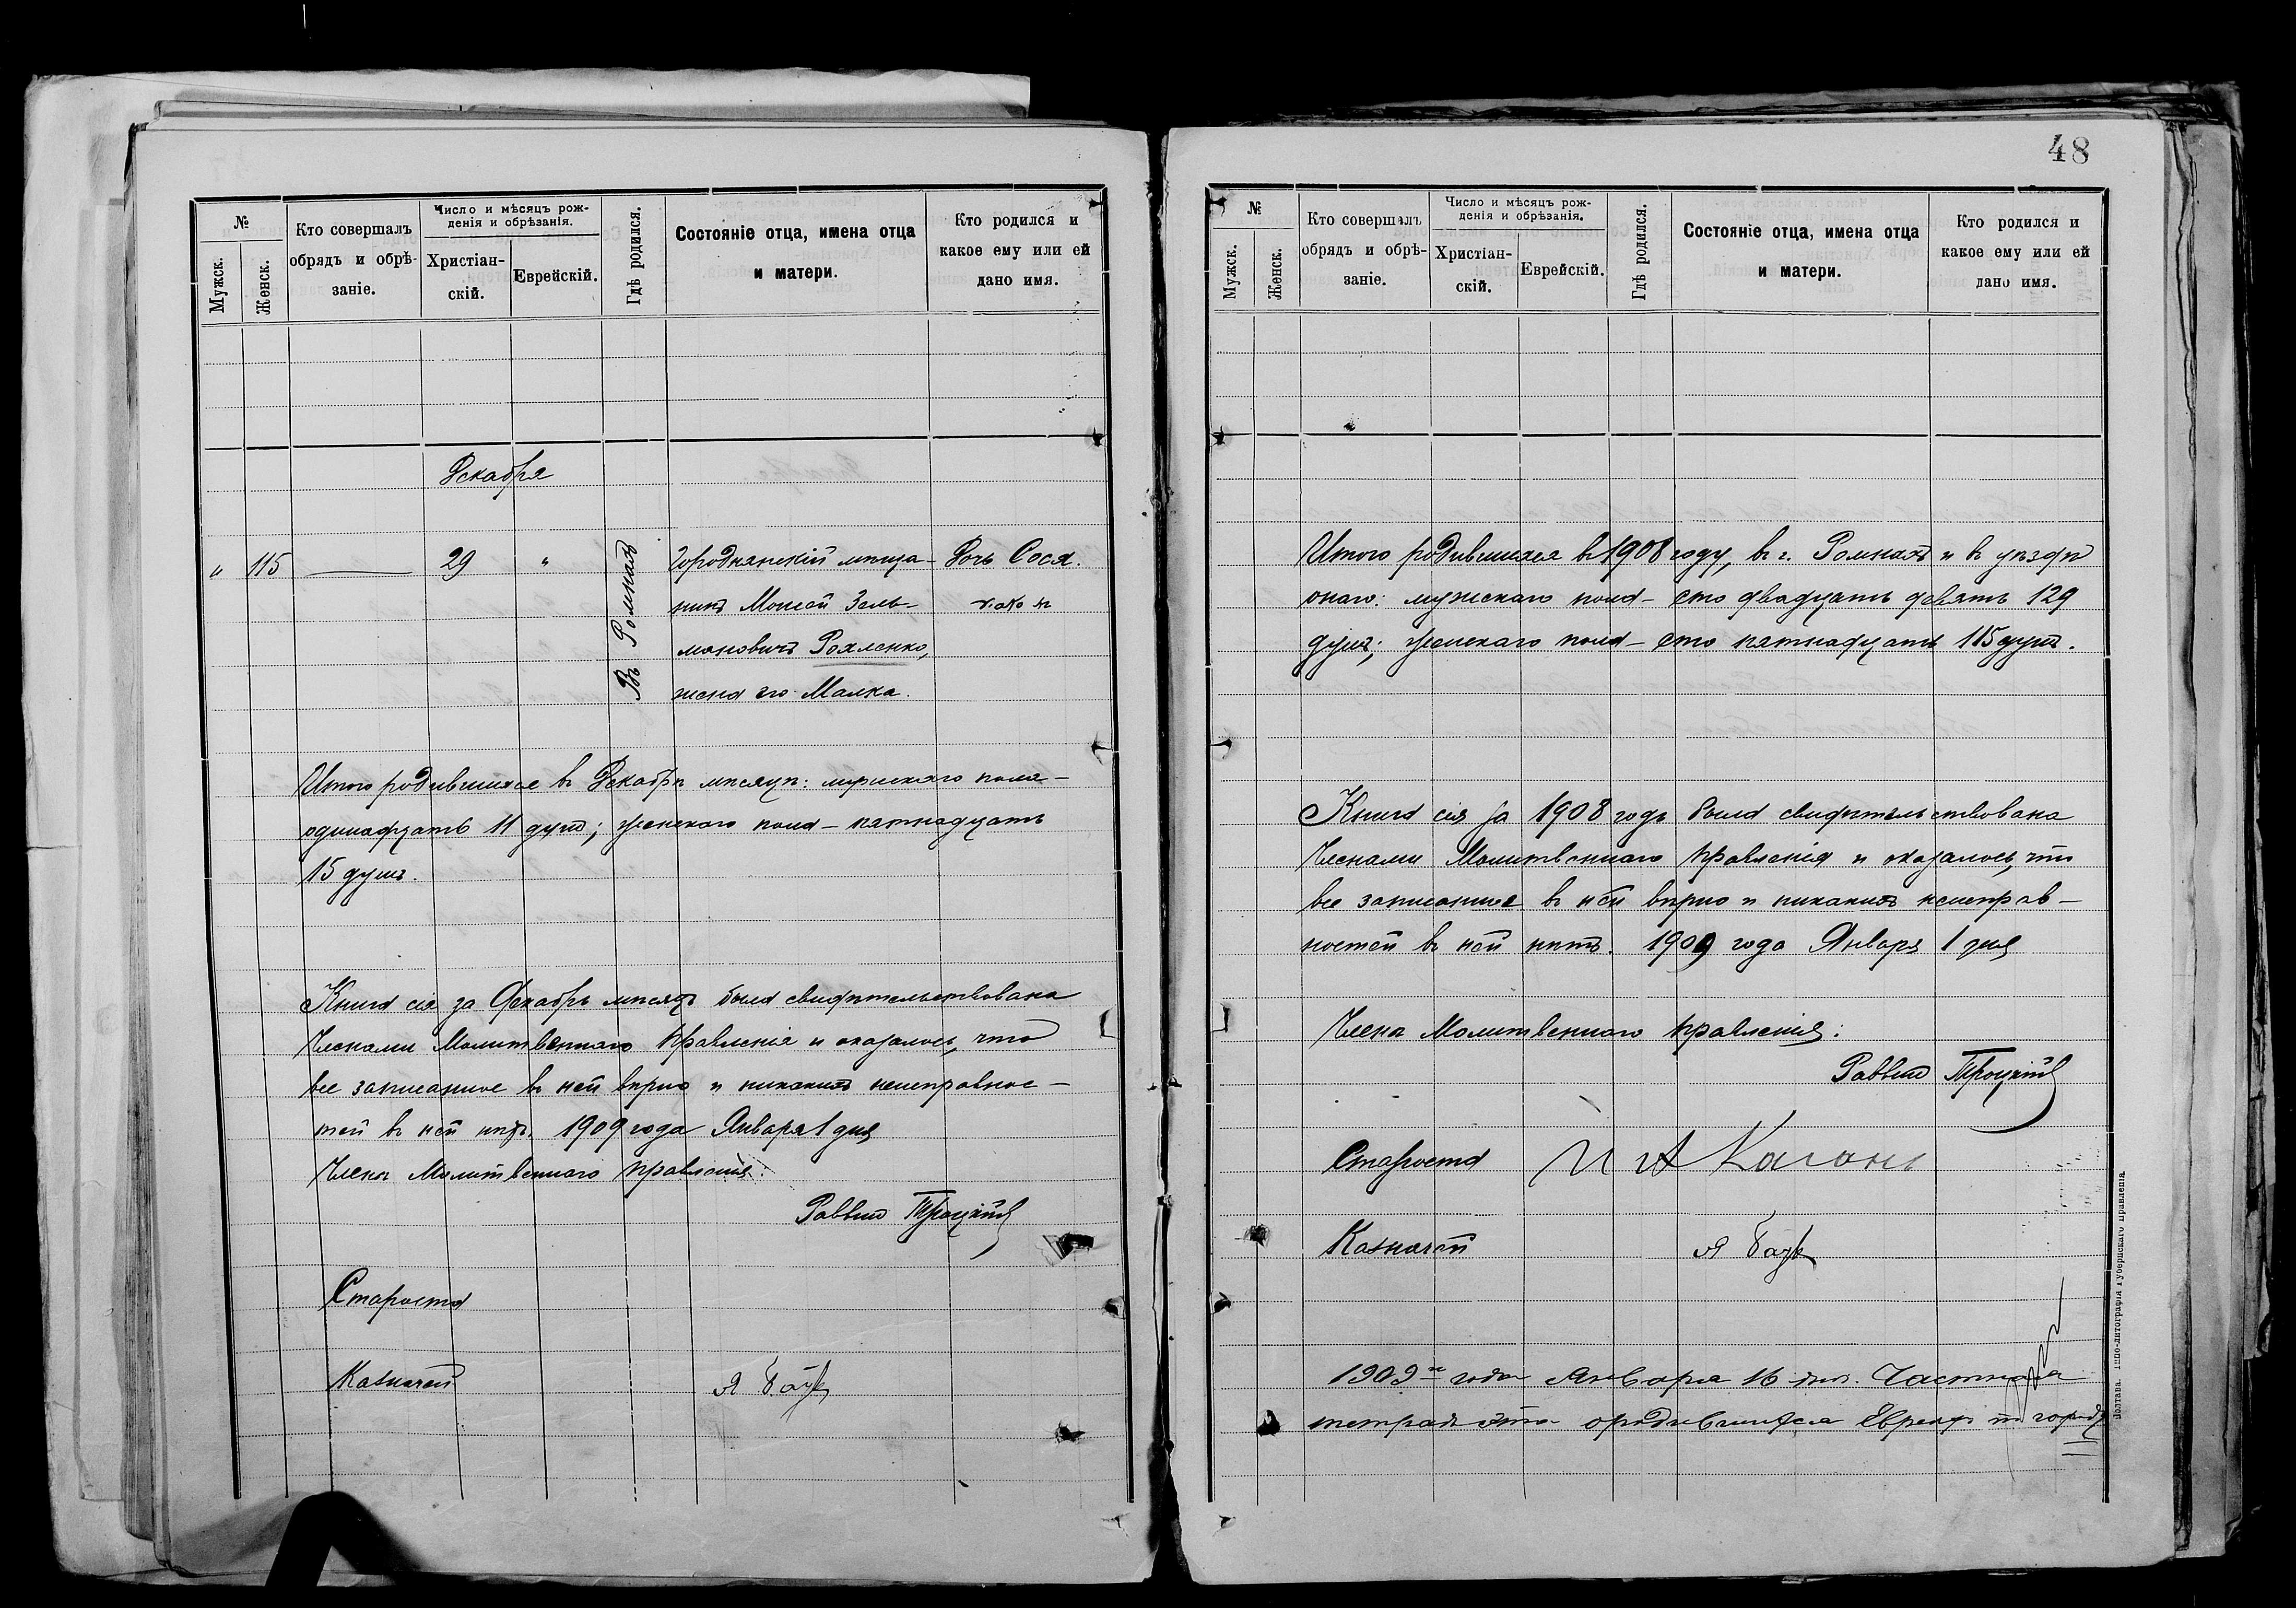 48
№
Мужск.
Женск.
Кто совершалъ
обрядъ и обрѣ-
заніе.
Число и мѣсяцъ рож-
денія и обрѣзанія.
Христіан-
скій.
Еврейскій.
Гдѣ родился.
Состояніе отца, имена отца
и матери.
Кто родился и
какое ему или ей
дано имя.
Декабря
" 115 29 "
Въ Ромнахъ
Городнянскій мѣща-
нинъ Моисей Зель-
мановичъ Рохленко,
жена его Малка.
Дочь Сося.
Итого родившихся въ Декабрѣ мѣсяцѣ: мужскаго пола -
одинадцать 11 душъ; женскаго пола - пятнадцать
15 душъ.
Книга сія за Декабрь мѣсяцъ была свидѣтельствована
Членами Молитвеннаго Правленія и оказалось, что
все записанное въ ней вѣрно и никакихъ неисправнос-
тей въ ней нѣтъ. 1909 года Января 1 дня
Члены Молитвеннаго Правленія:
Раввинъ Троцкій
Староста
Казначей
№
Мужск.
Женск.
Кто совершалъ
обрядъ и обрѣ-
заніе.
Число и мѣсяцъ рож-
денія и обрѣзанія.
Христіан-
скій.
Еврейскій.
Гдѣ родился.
Состояніе отца, имена отца
и матери.
Кто родился и
какое ему или ей
дано имя.
Итого родившихся въ 1908 году, въ г. Ромнахъ и въ уѣздѣ
онаго: мужскаго пола - сто двадцать девять 129
душъ; женскаго пола - сто пятнадцать 115 душъ.
Книга сія за 1908 годъ была свидѣтельствована
Членами Молитвеннаго Правленія и оказалось, что
все записанное въ ней вѣрно и никакихъ неисправ-
ностей въ ней нѣтъ. 1909 года Января 1 дня
Члены Молитвеннаго Правленія:
Раввинъ Троцкій
Староста Каганъ
Казначей
1909 года Января 16 дня. Частная
тетрадь эта о родившихся Евреяхъ городѣ
Полтава. Типо-литографія Губернскаго Правленія